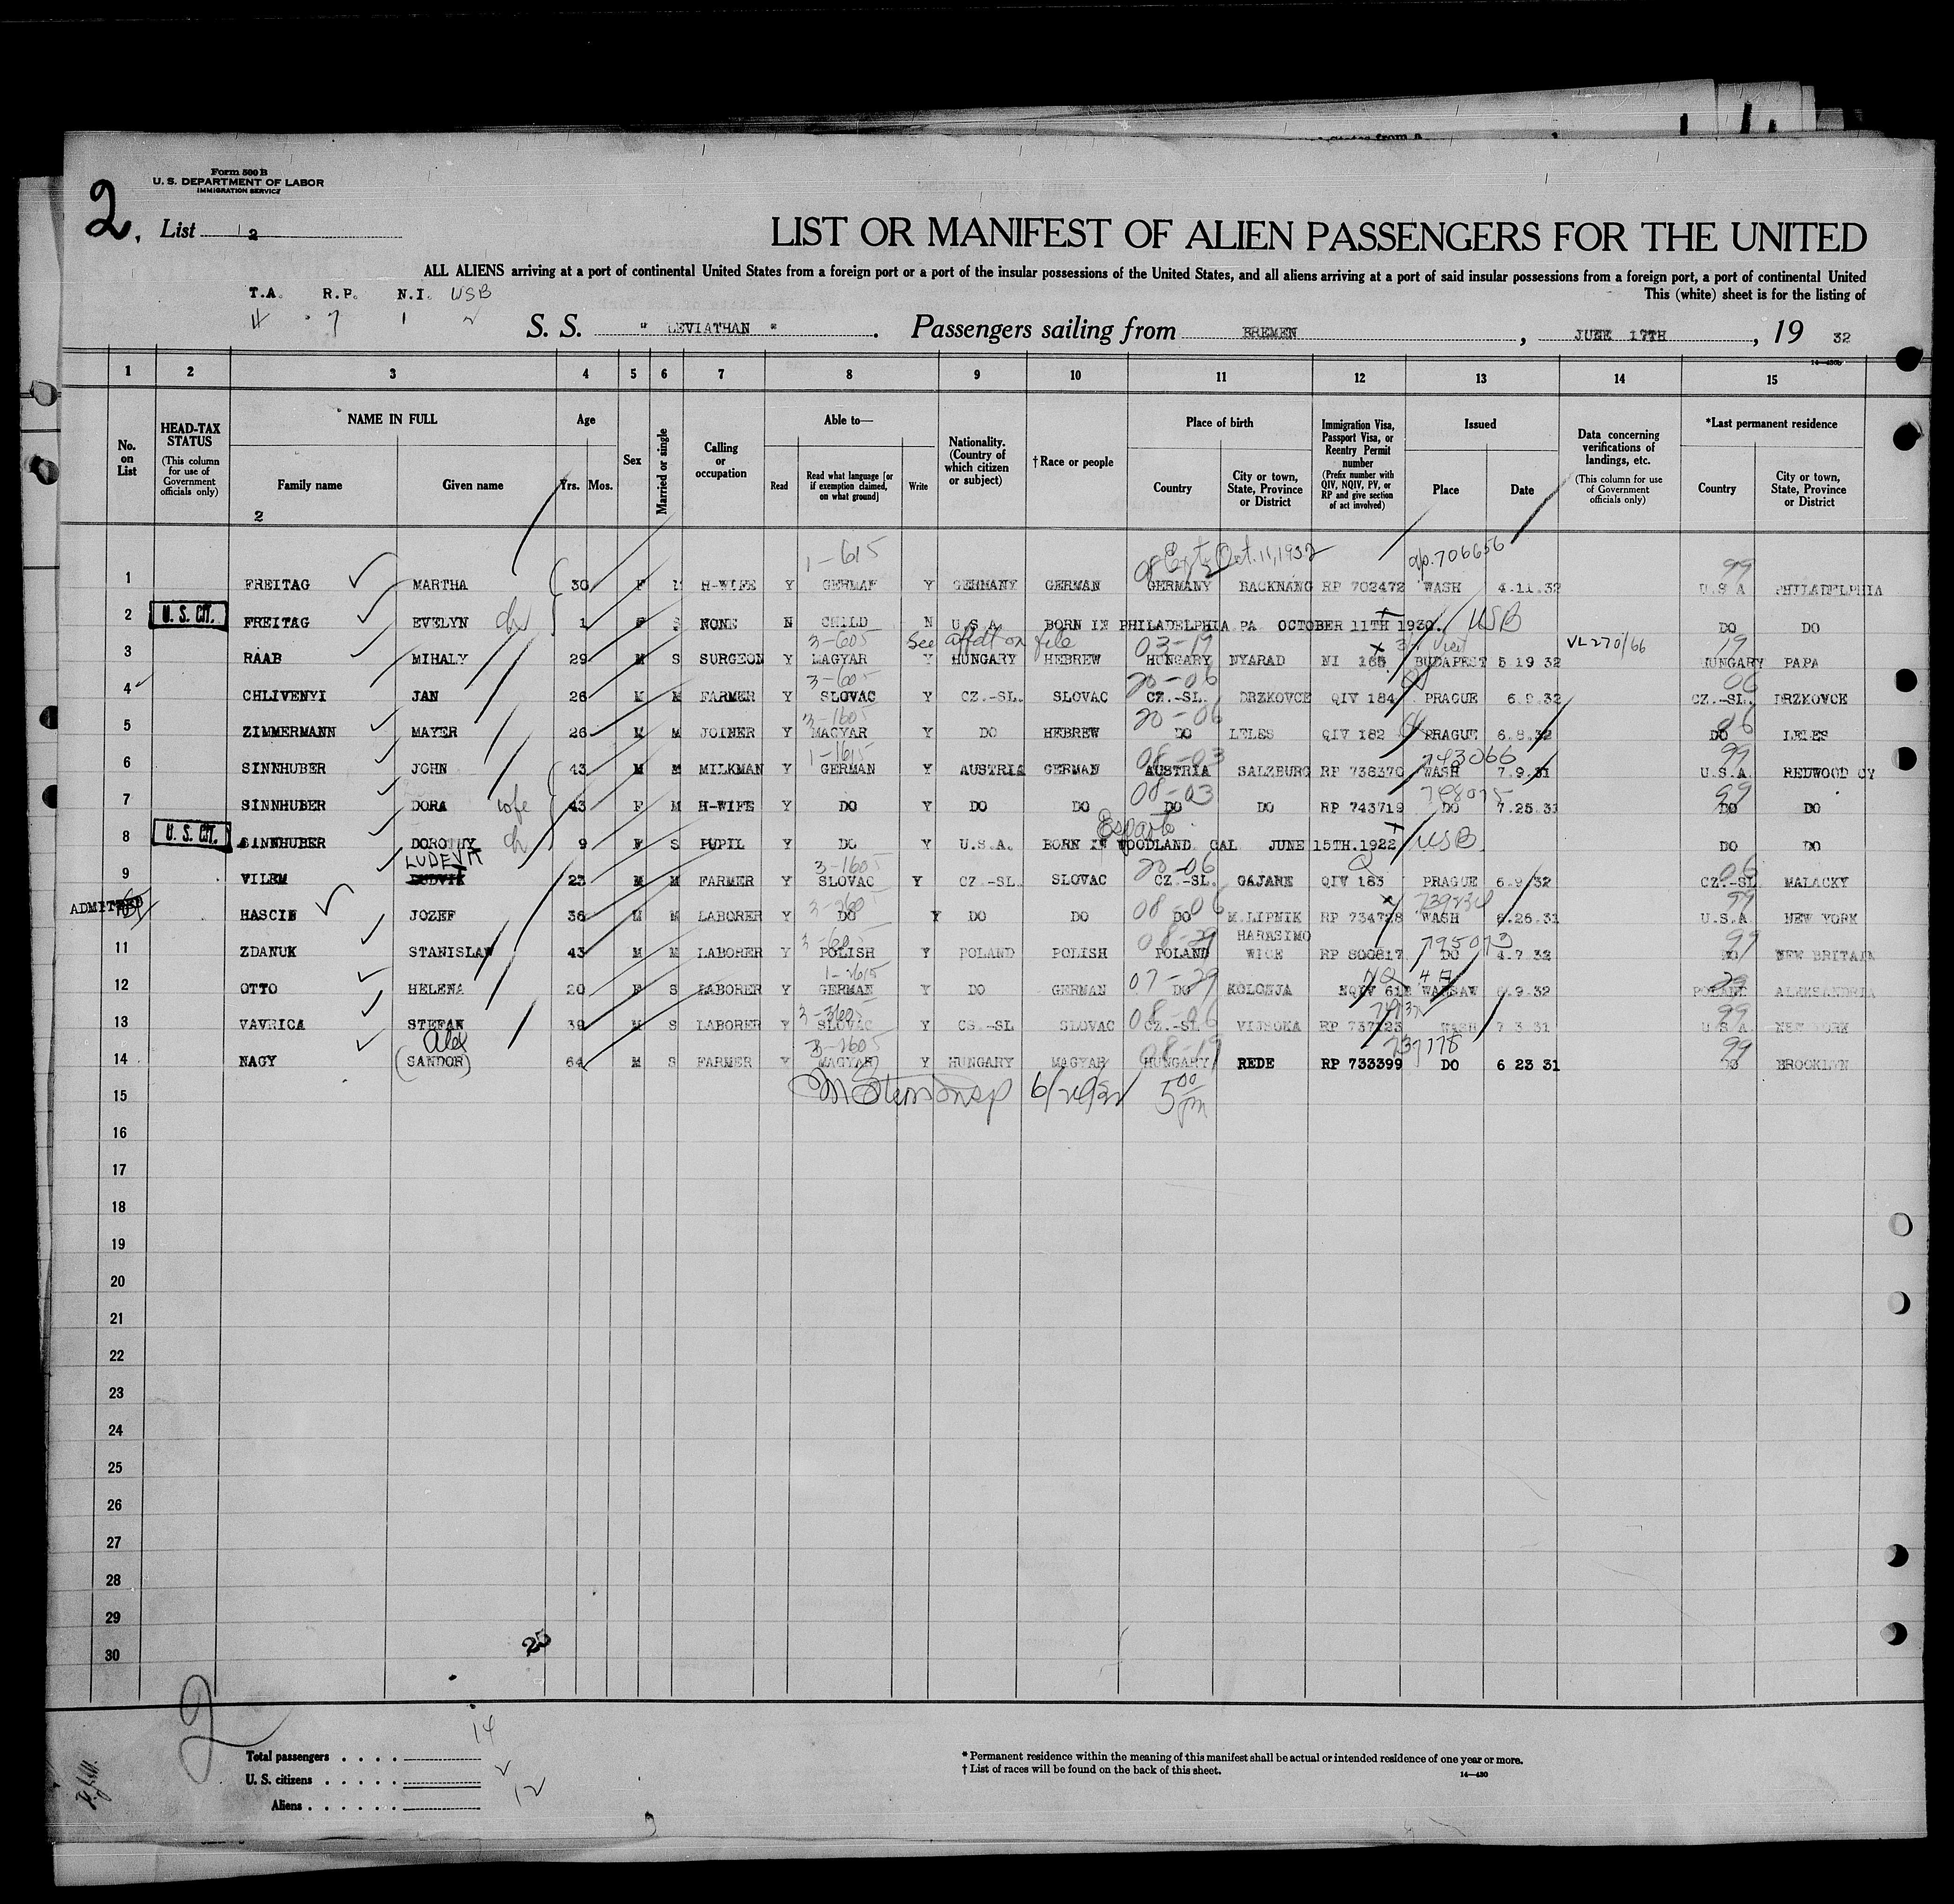 Form 500 B
U. S. DEPARTMENT OF LABOR
IMMIGRATION SERVICE
2. List 2
LIST OR MANIFEST OF ALIEN PASSENGERS FOR THE UNITED
ALL ALIENS arriving at a port of continental United States from a foreign port or a port of the insular possessions of the United States, and all aliens arriving at a port of said insular possessions from a foreign port, a port of continental United
This (white) sheet is for the listing of
T.A. R.P. N.I. USB
7 1 2
S. S. " LEVIATHAN " . Passengers sailing from BREMEN , JUNE 17TH , 19 32
14—430b
1 2 3 4 5 6 7 8 9 10 11 12 13 14 15
No. on List
HEAD-TAX STATUS (This column for use of Government officials only)
NAME IN FULL Family name Given name
2
Age Yrs. Mos.
Sex
Married or single
Calling or occupation
Able to— Read Read what language [or if exemption claimed, on what ground] Write
Nationality. (Country of which citizen or subject)
†Race or people
Place of birth Country City or town, State, Province or District
Immigration Visa, Passport Visa, or Reentry Permit number (Prefix number with QIV, NQIV, PV, or RP and give section of act involved)
Issued Place Date
Data concerning verifications of landings, etc. (This column for use of Government officials only)
*Last permanent residence Country City or town, State, Province or District
1-615 Oct. 11, 1932 706656 99
1 FREITAG MARTHA 30 F M H-WIFE Y GERMAN Y GERMANY GERMAN GERMANY BACKNANG RP 702472 WASH 4.11.32 U.S A PHILADELPHIA
2 U. S. CIT. FREITAG EVELYN ch 1 F S NONE N CHILD N U.S.A. BORN IN PHILADELPHIA PA OCTOBER 11TH 1930. USB DO DO
3-605 See affdt on file 03-19 VL 270/66 19
3 RAAB MIHALY 29 M S SURGEON Y MAGYAR Y HUNGARY HEBREW HUNGARY NYARAD NI 165 BUDAPEST 5 19 32 HUNGARY PAPA
3-605 20-06 06
4 CHLIVENYI JAN 26 M M FARMER Y SLOVAC Y CZ.-SL. SLOVAC CZ.-SL. DRZKOVCE QIV 184 PRAGUE 6.9.32 CZ.-SL. DRZKOVCE
3-1605 20-06 06
5 ZIMMERMANN MAYER 26 M M JOINER Y MAGYAR Y DO HEBREW DO LELES QIV 182 PRAGUE 6.8.32 DO LELES
1-1615 08-03 743066 99
6 SINNHUBER JOHN 43 M M MILKMAN Y GERMAN Y AUSTRIA GERMAN AUSTRIA SALZBURG RP 738370 WASH 7.9.31 U.S.A. REDWOOD CY
08-03 99
7 SINNHUBER DORA wife 43 F M H-WIFE Y DO Y DO DO DO DO RP 743719 DO 7.25.31 DO DO
Esparto
8 U. S. CIT. SINNHUBER DOROTHY ch 9 F S PUPIL Y DO Y U.S.A. BORN IN WOODLAND CAL JUNE 15TH.1922 USB DO DO
LUDEVIT 3-1605 20-06 06
9 VILEM LUDVIK 23 M M FARMER Y SLOVAC Y CZ.-SL. SLOVAC CZ.-SL. GAJARE QIV 183 PRAGUE 6.9.32 CZ.-SL MALACKY
3-2605 08-06 739234 99
ADMITTED HASCIN JOZEF 36 M M LABORER Y DO Y DO DO DO M.LIPNIK RP 734728 WASH 6.26.31 U.S.A. NEW YORK
HARASIMO 795013 99
11 ZDANUK STANISLAW 43 M M LABORER Y POLISH Y POLAND POLISH POLAND WICE RP 800817 DO 4.7.32 DO NEW BRITAIN
1-2615 07-29 29
12 OTTO HELENA 20 F S LABORER Y GERMAN Y DO GERMAN DO KOLONJA NQIV 612 WARSAW 6.9.32 POLAND ALEKSANDRIA
3-3605 08-06 99
13 VAVRICA STEFAN 39 M S LABORER Y SLOVAC Y CS.-SL SLOVAC CZ.-SL VIJSOKA RP 737123 WASH 7 3.31 U.S.A. NEW YORK
Alex 3-2605 08-19 737178 99
14 NAGY (SANDOR) 64 M S FARMER Y MAGYAR Y HUNGARY MAGYAR HUNGARY REDE RP 733399 DO 6 23 31 DO BROOKLYN
15 5 00 pm
16
17
18
19
20
21
22
23
24
25
26
27
28
29
25
30
2
14
Total passengers . . . .
U. S. citizens . . . . . 2
Aliens . . . . . . 12
* Permanent residence within the meaning of this manifest shall be actual or intended residence of one year or more.
† List of races will be found on the back of this sheet.
14—430